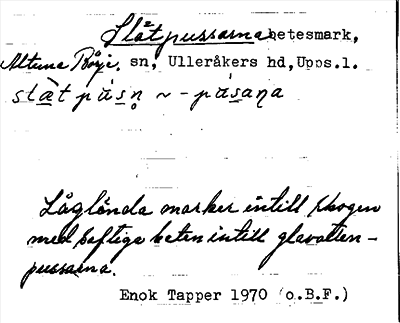 Slåtpussarna betesmark,
Altuna Böje. sn, Ulleråkers hd, Upps.l.
slàt pásn̥ ~ -pásaṇa
Låglända marker intill skogen
med saftiga beten intill glavatten-
pussarna.
Enok Tapper 1970 (o.B.F.)